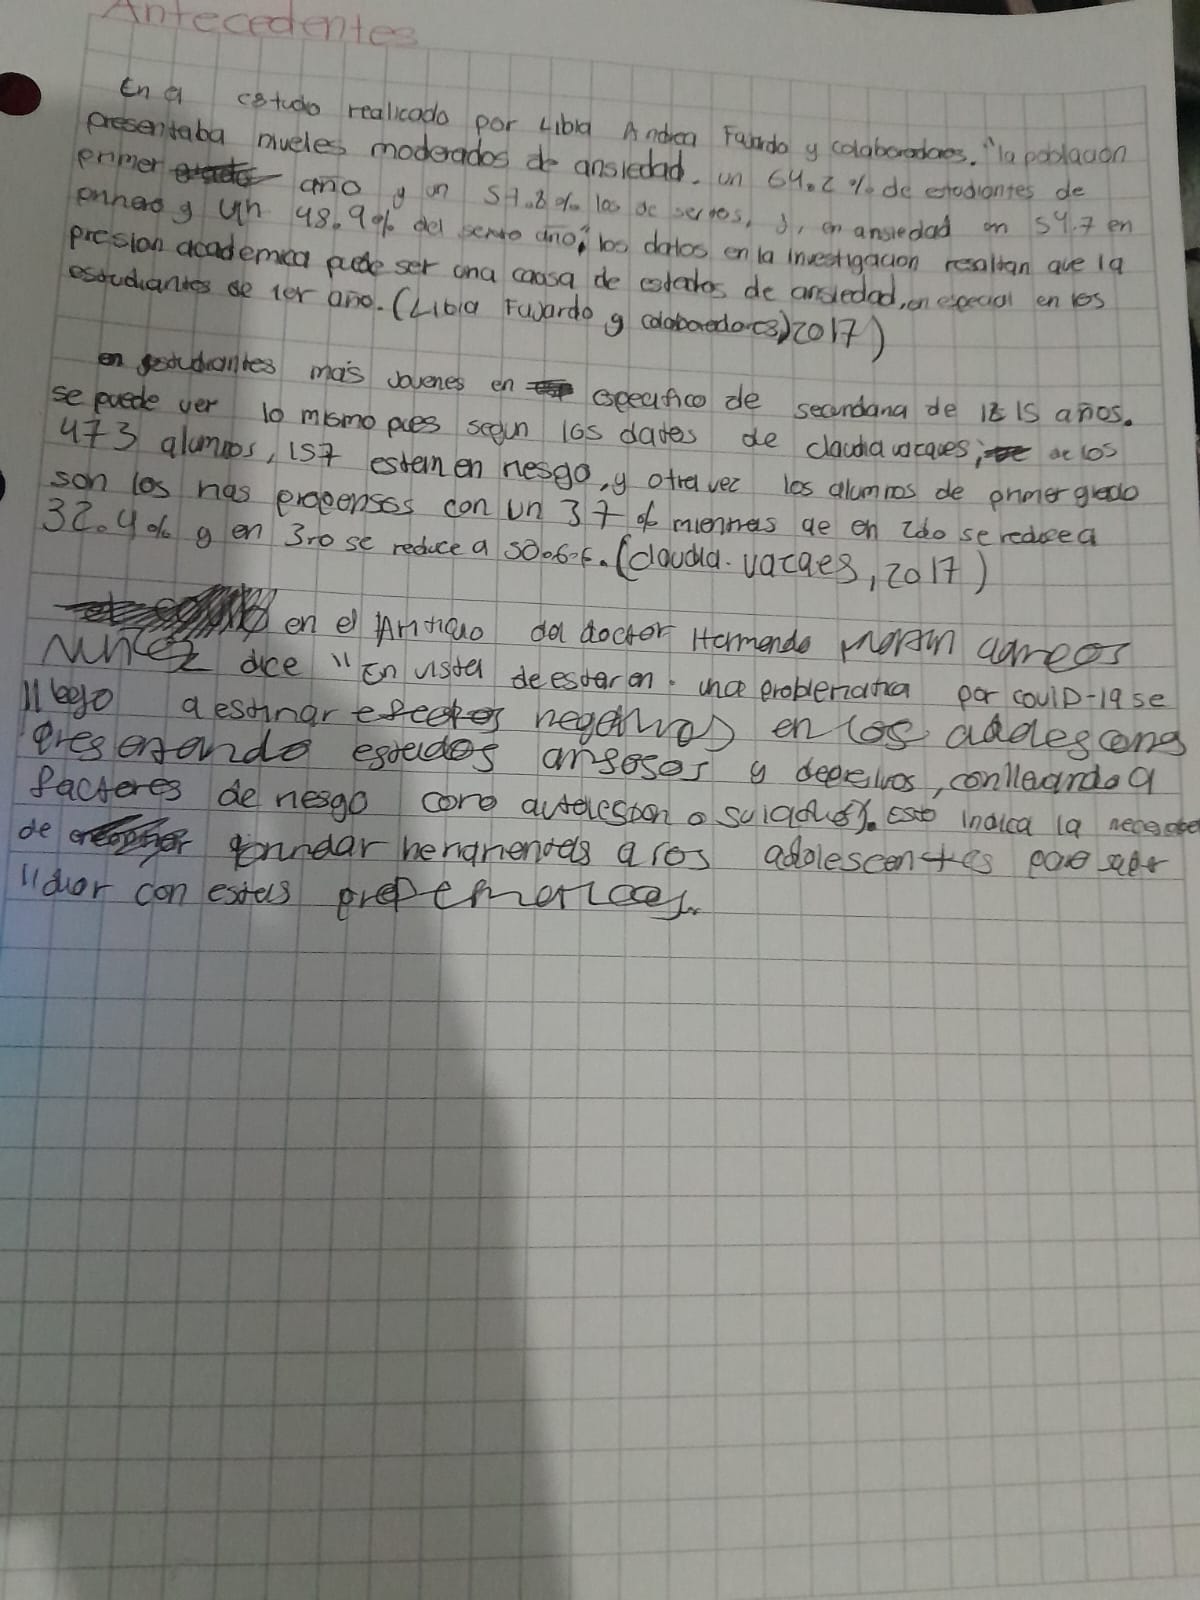 Antecedentes
En el estudo realicado por Libia Andrea Fajardo y colaboradores. "la poblacion
presentaba niveles moderados de ansiedad. un 64.2 % de estudiantes de
primer año y un 57.8% los de sextos, y, en ansiedad un 54.7 en
primero y un 48.9% del sexto año", los datos en la investigacion resaltan que la
presion academica puede ser una causa de estados de ansiedad, en especial en los
estudiantes de 1er año. (Libia Fajardo y colaboradores, 2017)
en estudiantes mas Jovenes en especifico de secundaria de 12 15 años.
se puede ver lo mismo pues segun los dates de claudia vacques, de los
473 alumnos, 157 estan en riesgo, y otra vez los alumnos de primer grado
son los mas propensos con un 37 % mientras qe en 2do se reduce a
32.4% y en 3ro se reduce a 30.6%. (claudia. vacques, 2017)
en el Articuo del doctor Hermando Martin
Nuñez dice "En vista de estar en una problematica por covid-19 se
llego a estinar efectos negativos en los
presentando estados ansosos y depresivos, conllevando a
factores de riesgo como autolesion o suicidios". Esto indica la
de brindar herramientas a los adolescentes para saber
lidiar con estas